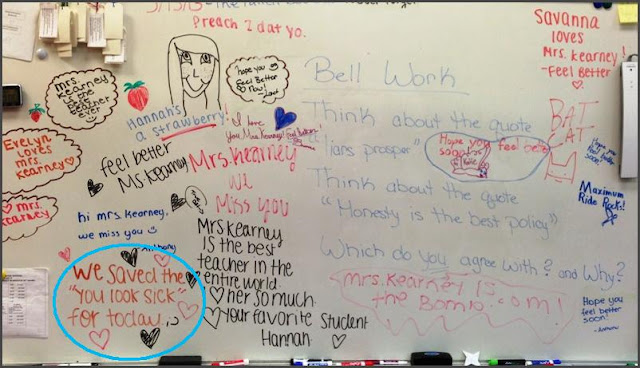 Preach 2 dat yo.
Savanna
loves
Mrs. Kearney!
-Feel Better
Mrs.
Kearney
is the
greatest
teacher
ever
hope you
Feel Better
now!
Hannah's
a strawberry!
I love
you, Mrs. Kearney!
Bell Work
Think about the quote
"liars prosper"
Hope you feel better
soon!
Think about the quote
"Honesty is the best policy"
Which do you agree with? and Why?
BAT
CAT
Hope you
feel better
soon!
Maximum
Ride Rock!!
Evelyn
loves
mrs.
Kearney
feel better
Ms. Kearney
Mrs. Kearney
We
Miss you
mrs.
Kearney
hi mrs. Kearney,
we miss you
Anthony
Mrs Kearney
is the best
teacher in the
entire world.
her so much
your favorite Student
Hannah
We saved the
"you look sick"
for today
Mrs. Kearney Is
the Bomb.com!
Hope you
feel better
soon!